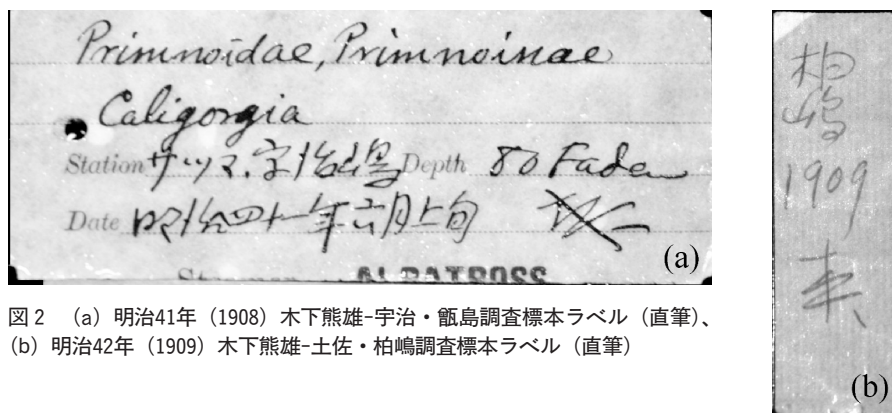 Primnoidae, Primnoinae
Caligorgia
Station サツマ、宇治嶋 Depth 80 Faden
Date 明治四十一年六月上旬
ALBATROSS
(a)
柏
嶋
1909
(b)
図2 (a) 明治41年(1908)木下熊雄−宇治・甑島調査標本ラベル(直筆)、
(b) 明治42年(1909)木下熊雄−土佐・柏嶋調査標本ラベル(直筆)